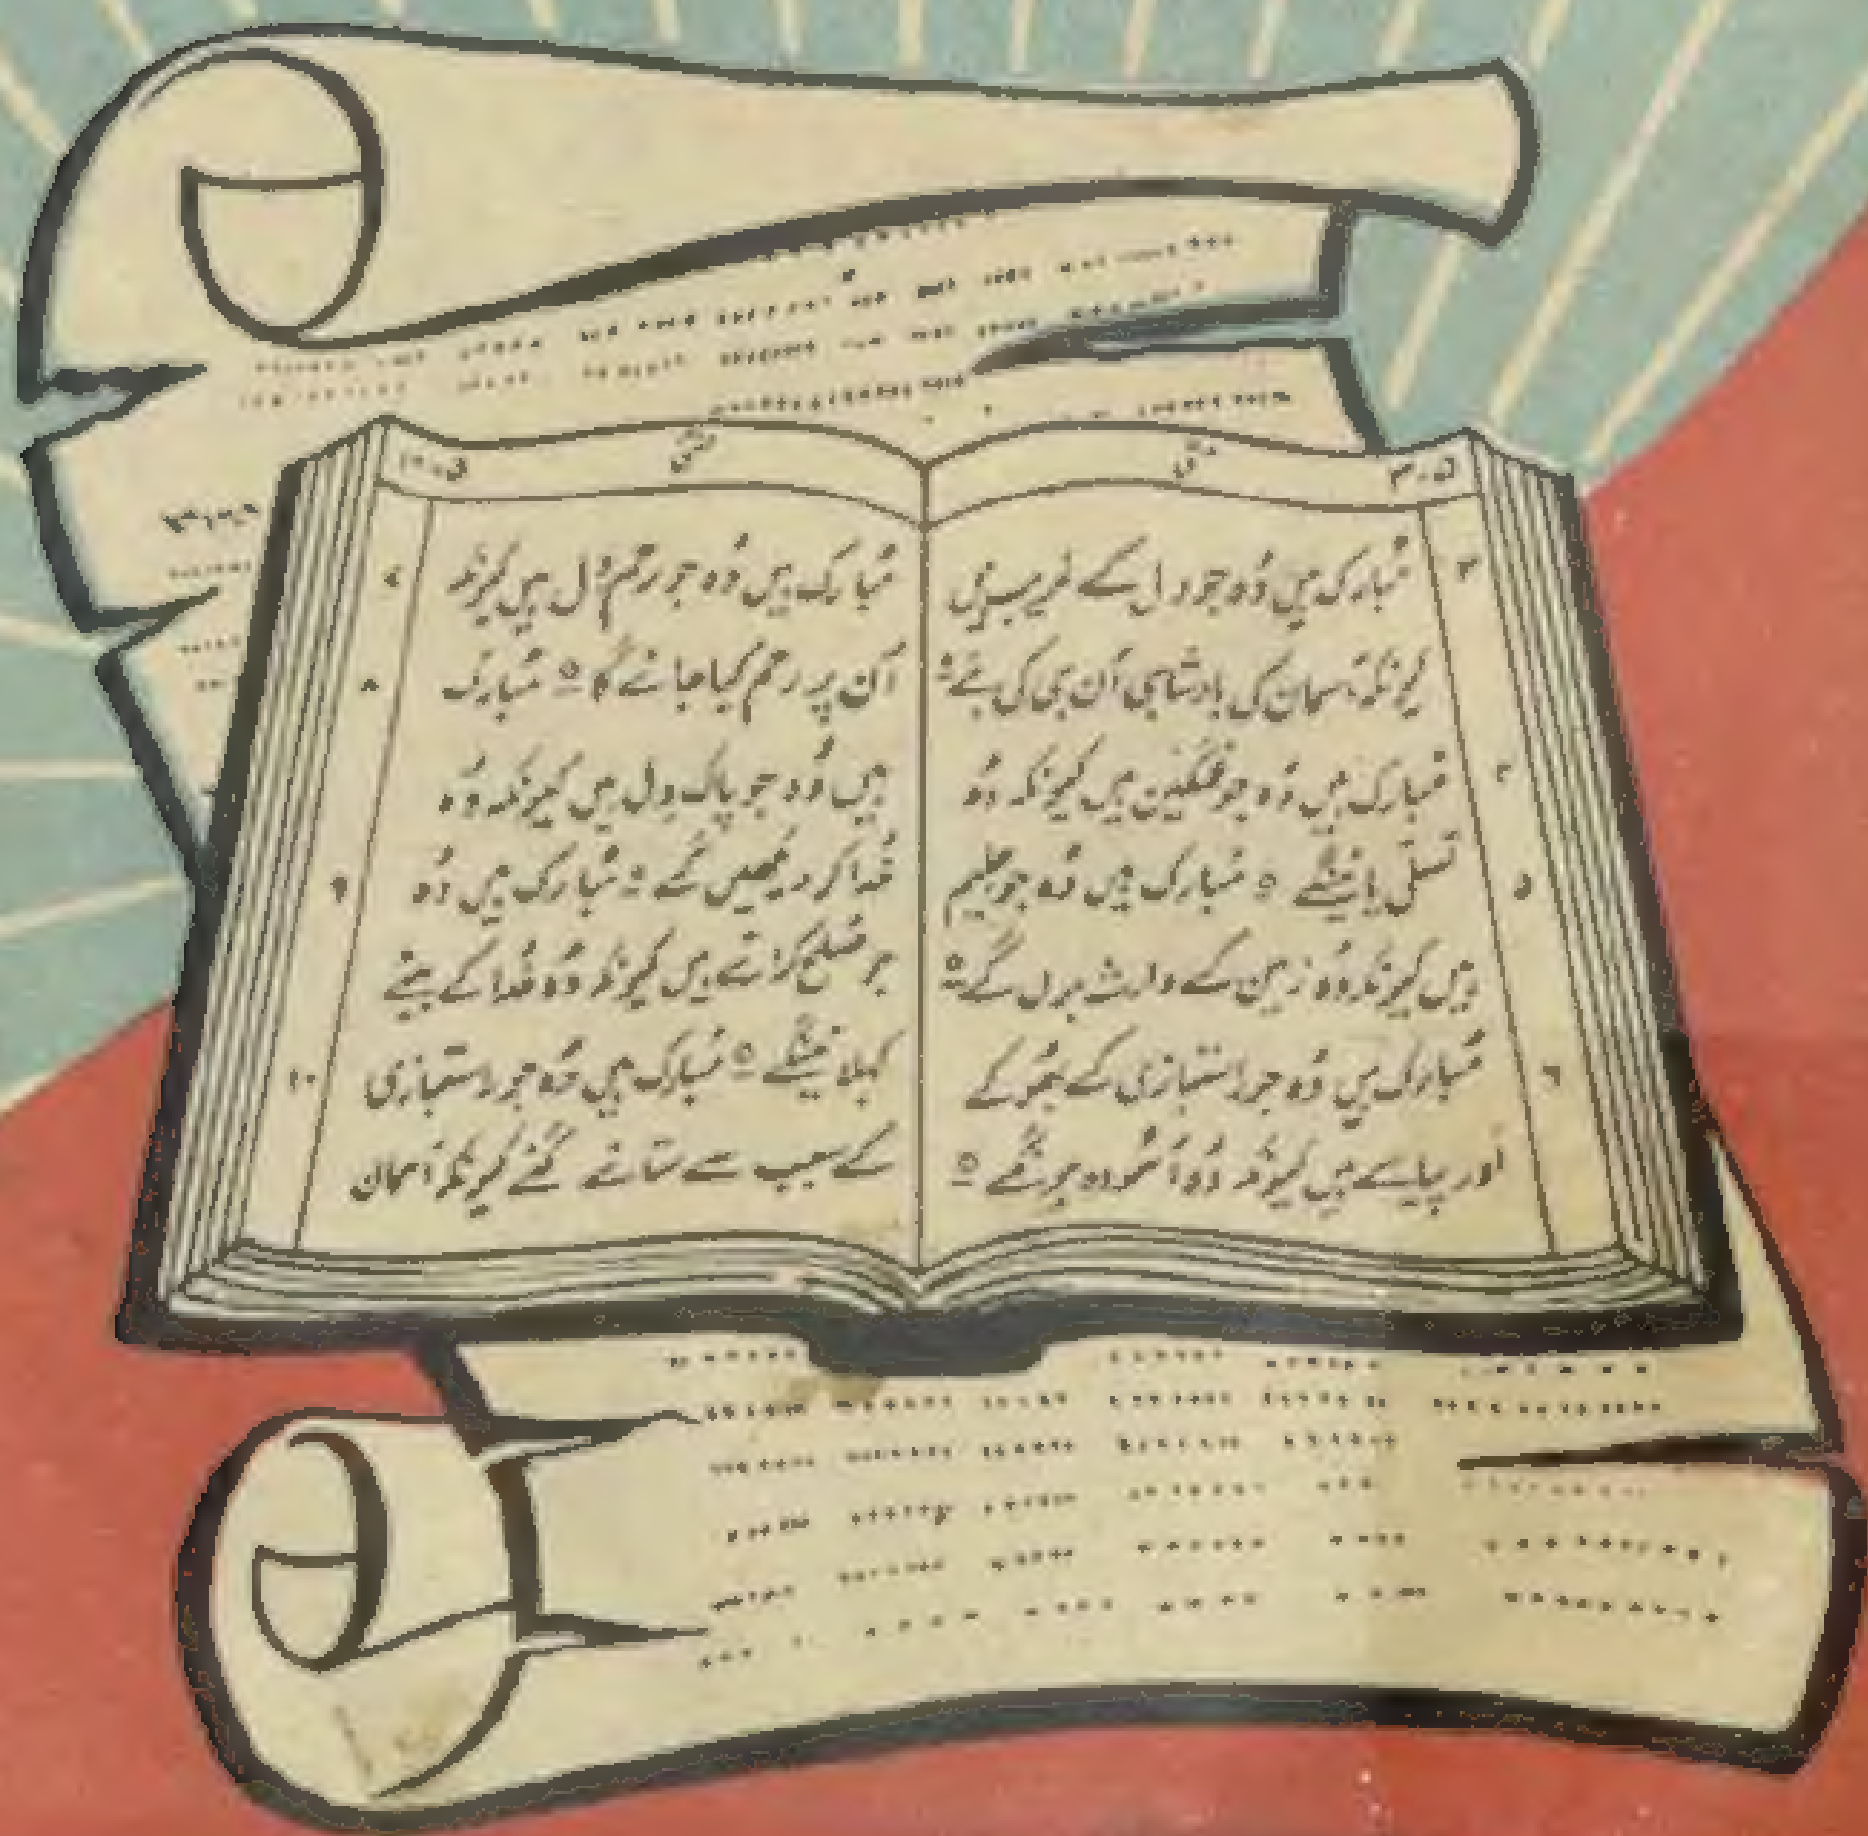 متی
۳
مُبارک ہیں وُہ جو دل کے غریب ہیں
کیونکہ آسمان کی بادشاہی اُن ہی کی ہَے ۝
۴
مُبارک ہیں وُہ جو غمگین ہیں کیونکہ وُہ
۵
تسلّی پائینگے ۝ مُبارک ہیں وُہ جو حلیم
ہیں کیونکہ وُہ زمین کے وارث ہوں گے ۝
۶
مُبارک ہیں وُہ جو راستبازی کے بھُوکے
اور پیاسے ہیں کیونکہ وُہ آسُودہ ہونگے ۝
متی
۷
مُبارک ہیں وُہ جو رحم دِل ہیں کیونکہ
۸
اُن پر رحم کیا جائے گا ۝ مُبارک
ہیں وُہ جو پاک دِل ہیں کیونکہ وُہ
۹
خُدا کو دیکھیں گے ۝ مُبارک ہیں وُہ
جو صُلح کراتے ہیں کیونکہ وُہ خُدا کے بیٹے
۱۰
کہلائینگے ۝ مُبارک ہیں وُہ جو راستبازی
کے سبب سے ستائے گئے کیونکہ آسمان